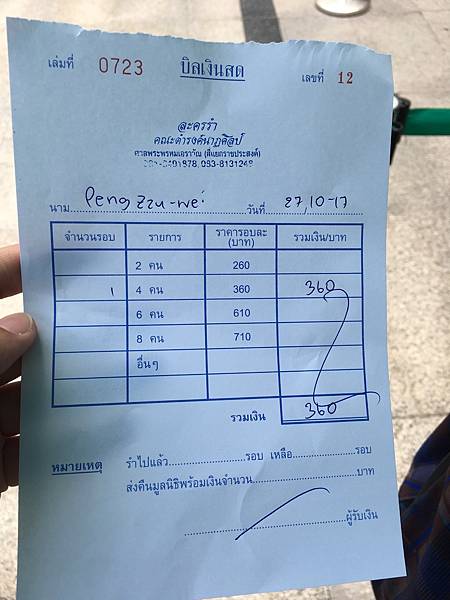 เล่มที่ 0723 บิลเงินสด เลขที่ 12
ละครรำ
คณะดำรงค์นาฏศิลป์
ศาลพระพรหมเอราวัณ (สี่แยกราชประสงค์)
083-8131248
นาม Peng Zzu-wei วันที่ 27,10-17
จำนวนรอบ รายการ ราคารอบละ (บาท) รวมเงิน/บาท
2 คน 260
1 4 คน 360 360
6 คน 610
8 คน 710
อื่นๆ
รวมเงิน 360
หมายเหตุ รำไปแล้ว....................รอบ เหลือ....................รอบ
ส่งคืนมูลนิธิพร้อมเงินจำนวน....................บาท
....................ผู้รับเงิน